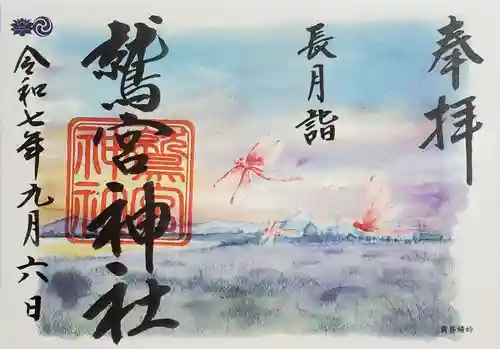 奉拝
長月詣
鷲宮神社
鷲宮
神社
令和七年九月六日